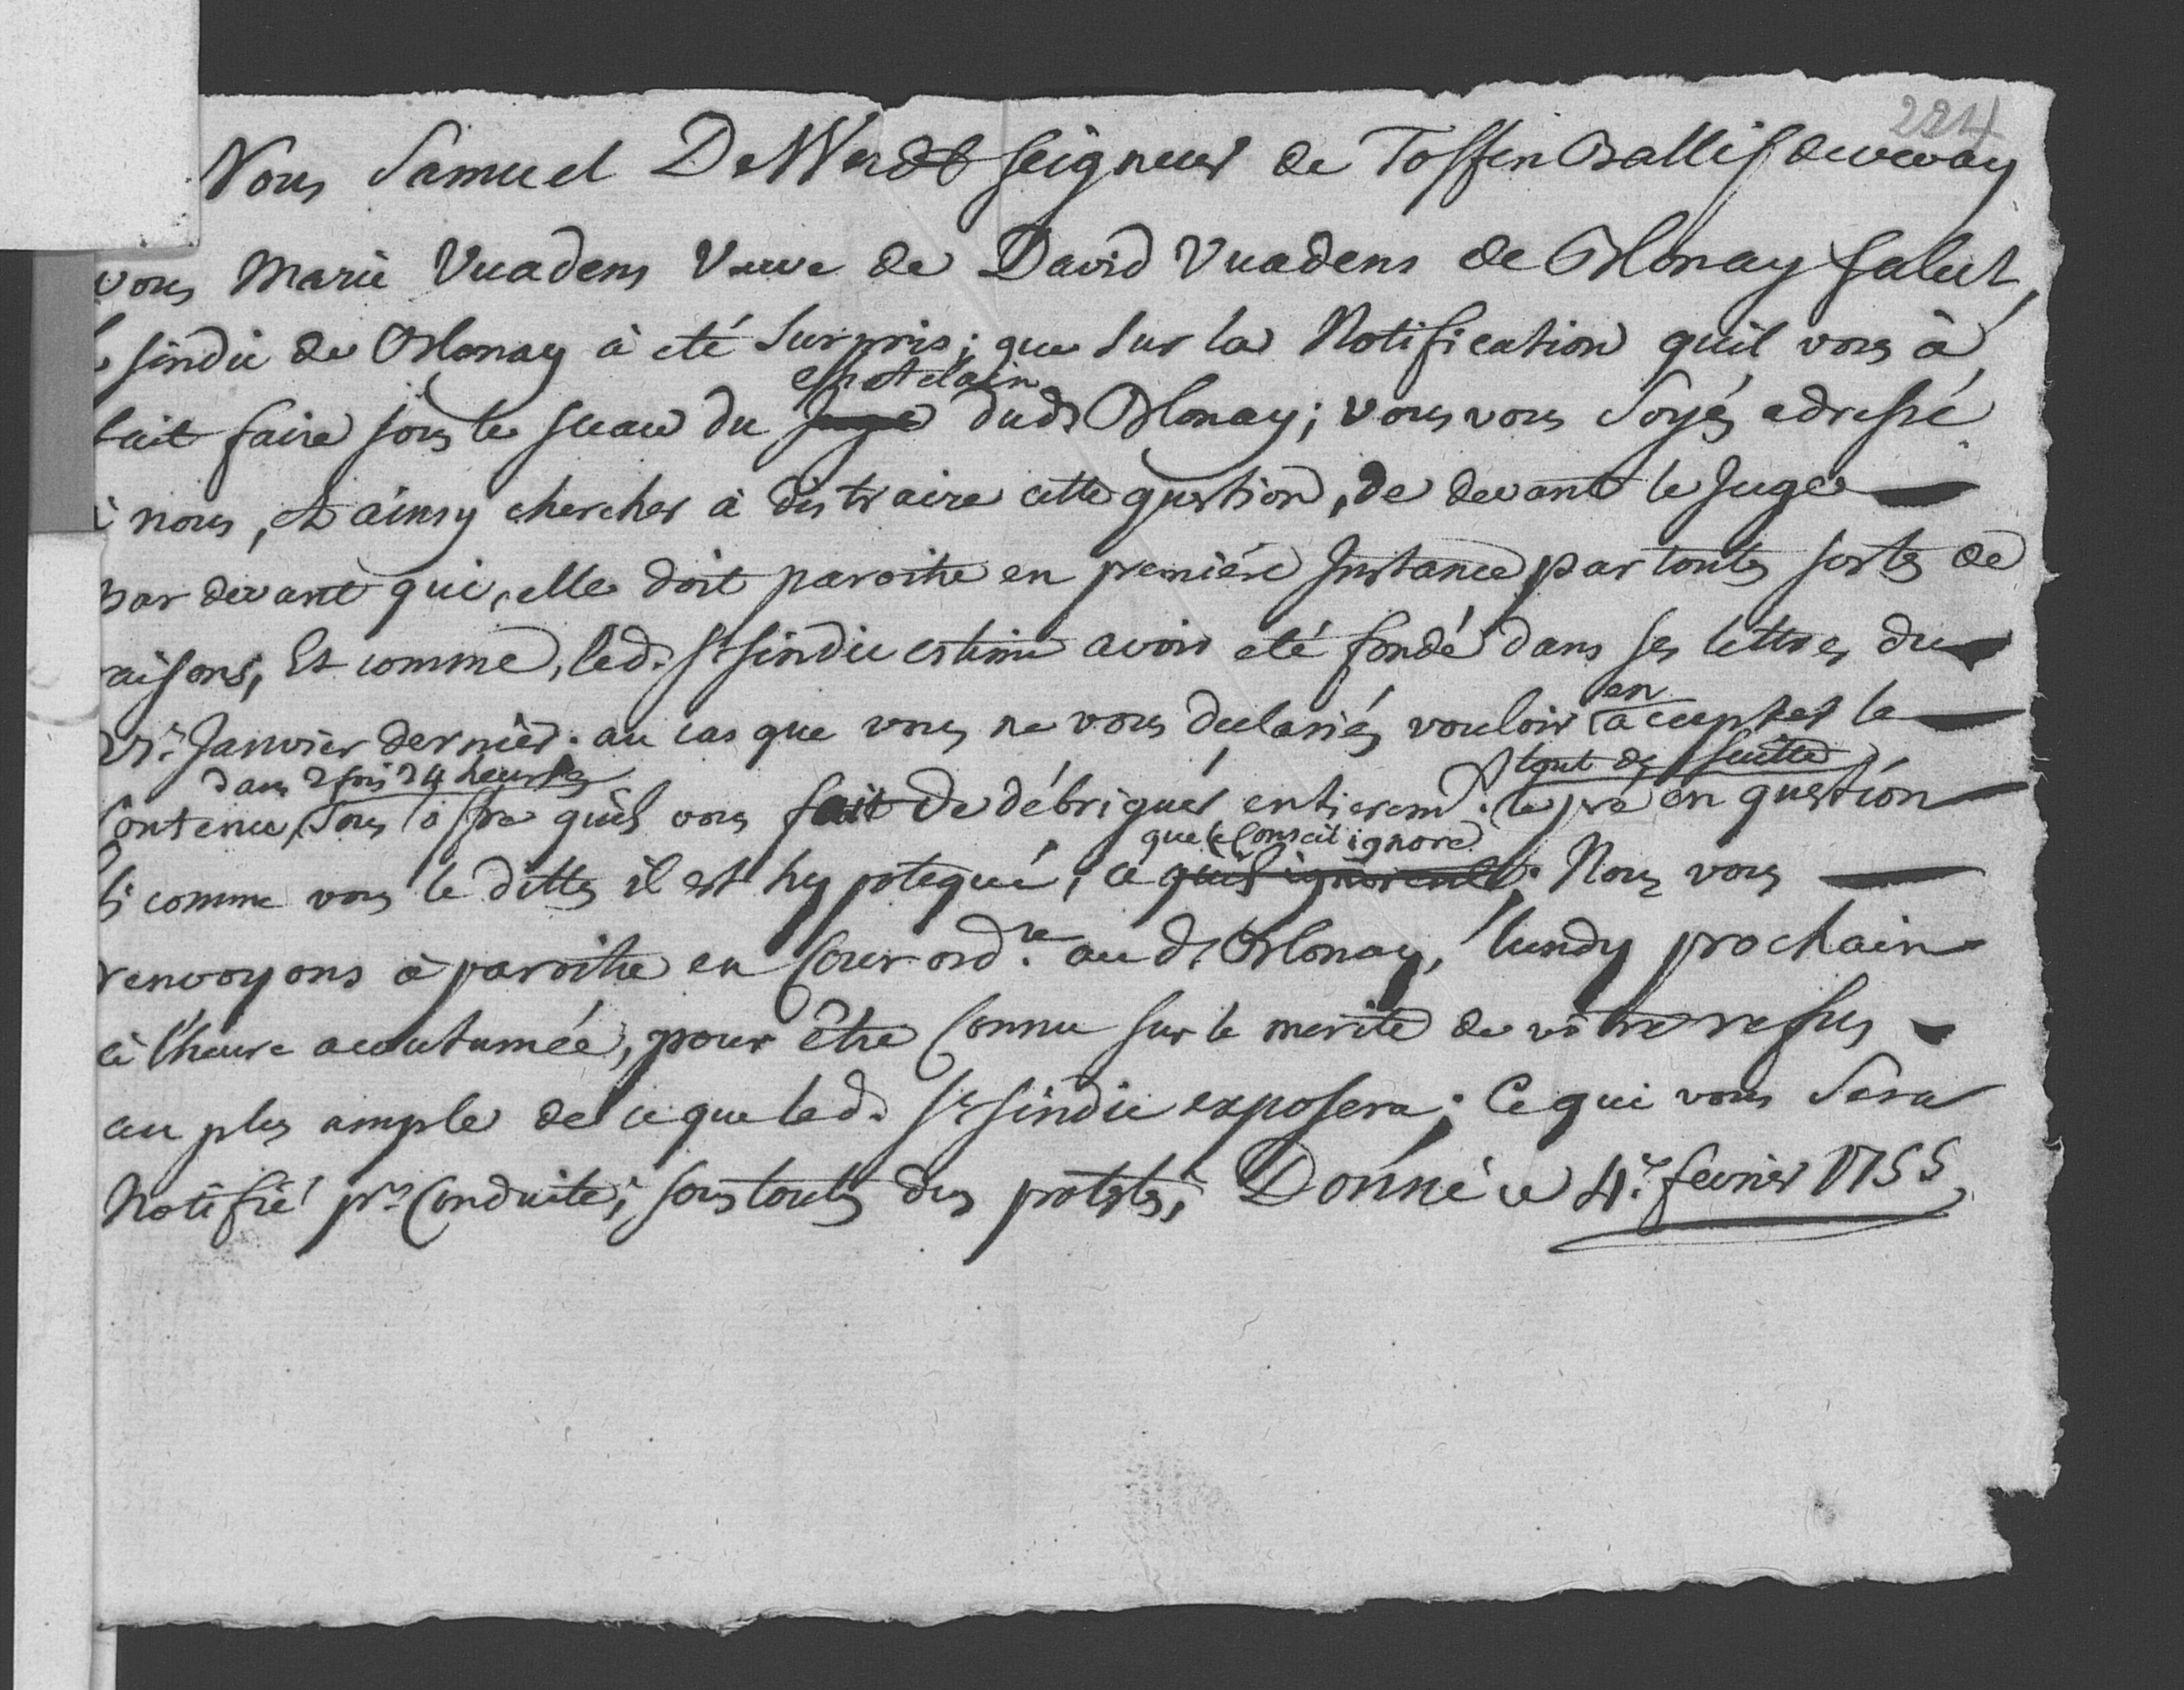 224
Nous Samuel DeWerdt seigneur de Toffen Ballif de vevay
vous Marie Vuadens Veuve de David Vuadens de Blonay salut,
sindic de Blonay à eté surpris; que sur la Notification qu'il vous à
chatelain
fait faire sous le sceau du Juge dudt Blonay; vous vous soyés adressé
à nous, et ainsy chercher à distraire cette question, de devant le Juge
par devant qui, elle doit paroitre en première Instance par toutes sortes de
raisons, Et comme, led. Sr sindic estime avoir eté fondé dans ses lettres du
en
Janvier dernier. au cas que vous ne vous declariés vouloir accepter le
dans 2 fois 24 heures
tout de suitte
Contenu, sous l'offre qu'il vous fait de débriguer entieremt. le pré en question
que le Conseil ignore
si comme vous le dittes il est hypotequé; ce qu'il ignorent; Nous vous
renvoyons à paroitre en Cour ordre. audt Blonay, lundy prochain
à l'heure acoutumée, pour être Connu sur le merite de vôtre refus
au plus ample de ce que led. Sr sindic exposera; Ce qui vous sera
Notifié pr. Conduite; sous toutes dues protestes; Donné ce 4e. fevrier 1755